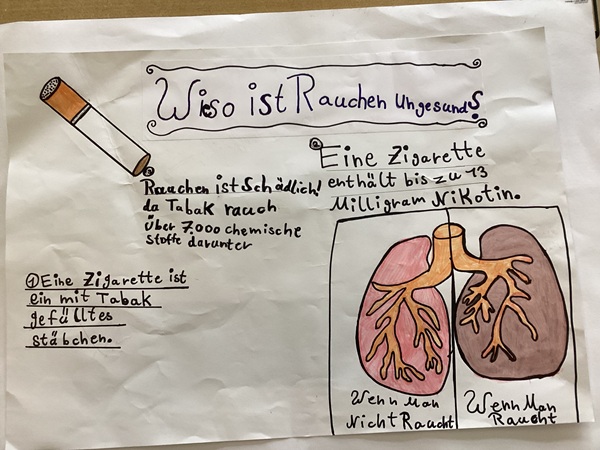 Wiso ist Rauchen Ungesund?
Rauchen ist Schädlich!
da Tabak rauch
über 7.000 chemische
stoffe darunter
② Eine Zigarette
enthält bis zu 13
Milligram Nikotin.
① Eine Zigarette ist
ein mit Tabak
gefülltes
stäbchen.
Wenn Man
Nicht Raucht
Wenn Man
Raucht